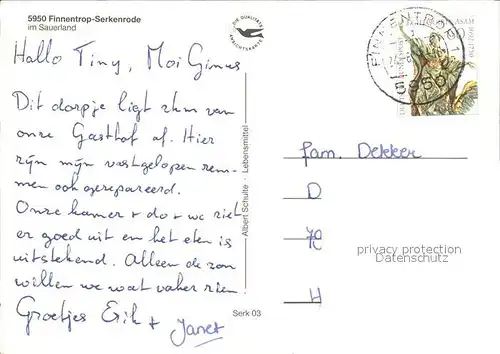 5950 Finnentrop-Serkenrode
im Sauerland
Hallo Tiny, Moi Ginus
Dit dorpje ligt 2km van
onze Gasthof af. Hier
zijn mijn vastgelopen rem-
men ook gerepareerd.
Onze kamer + do + wc ziet
er goed uit en het eten is
uitstekend. Alleen de zon
willen we wat vaker zien.
Groetjes Erik + Janet
DIE QUALITÄTS
ANSICHTSKARTE
Albert Schulte - Lebensmittel
Serk 03
FINNENTROP 1
5950
ASAM
fam. Dekker
D
H
privacy protection
Datenschutz